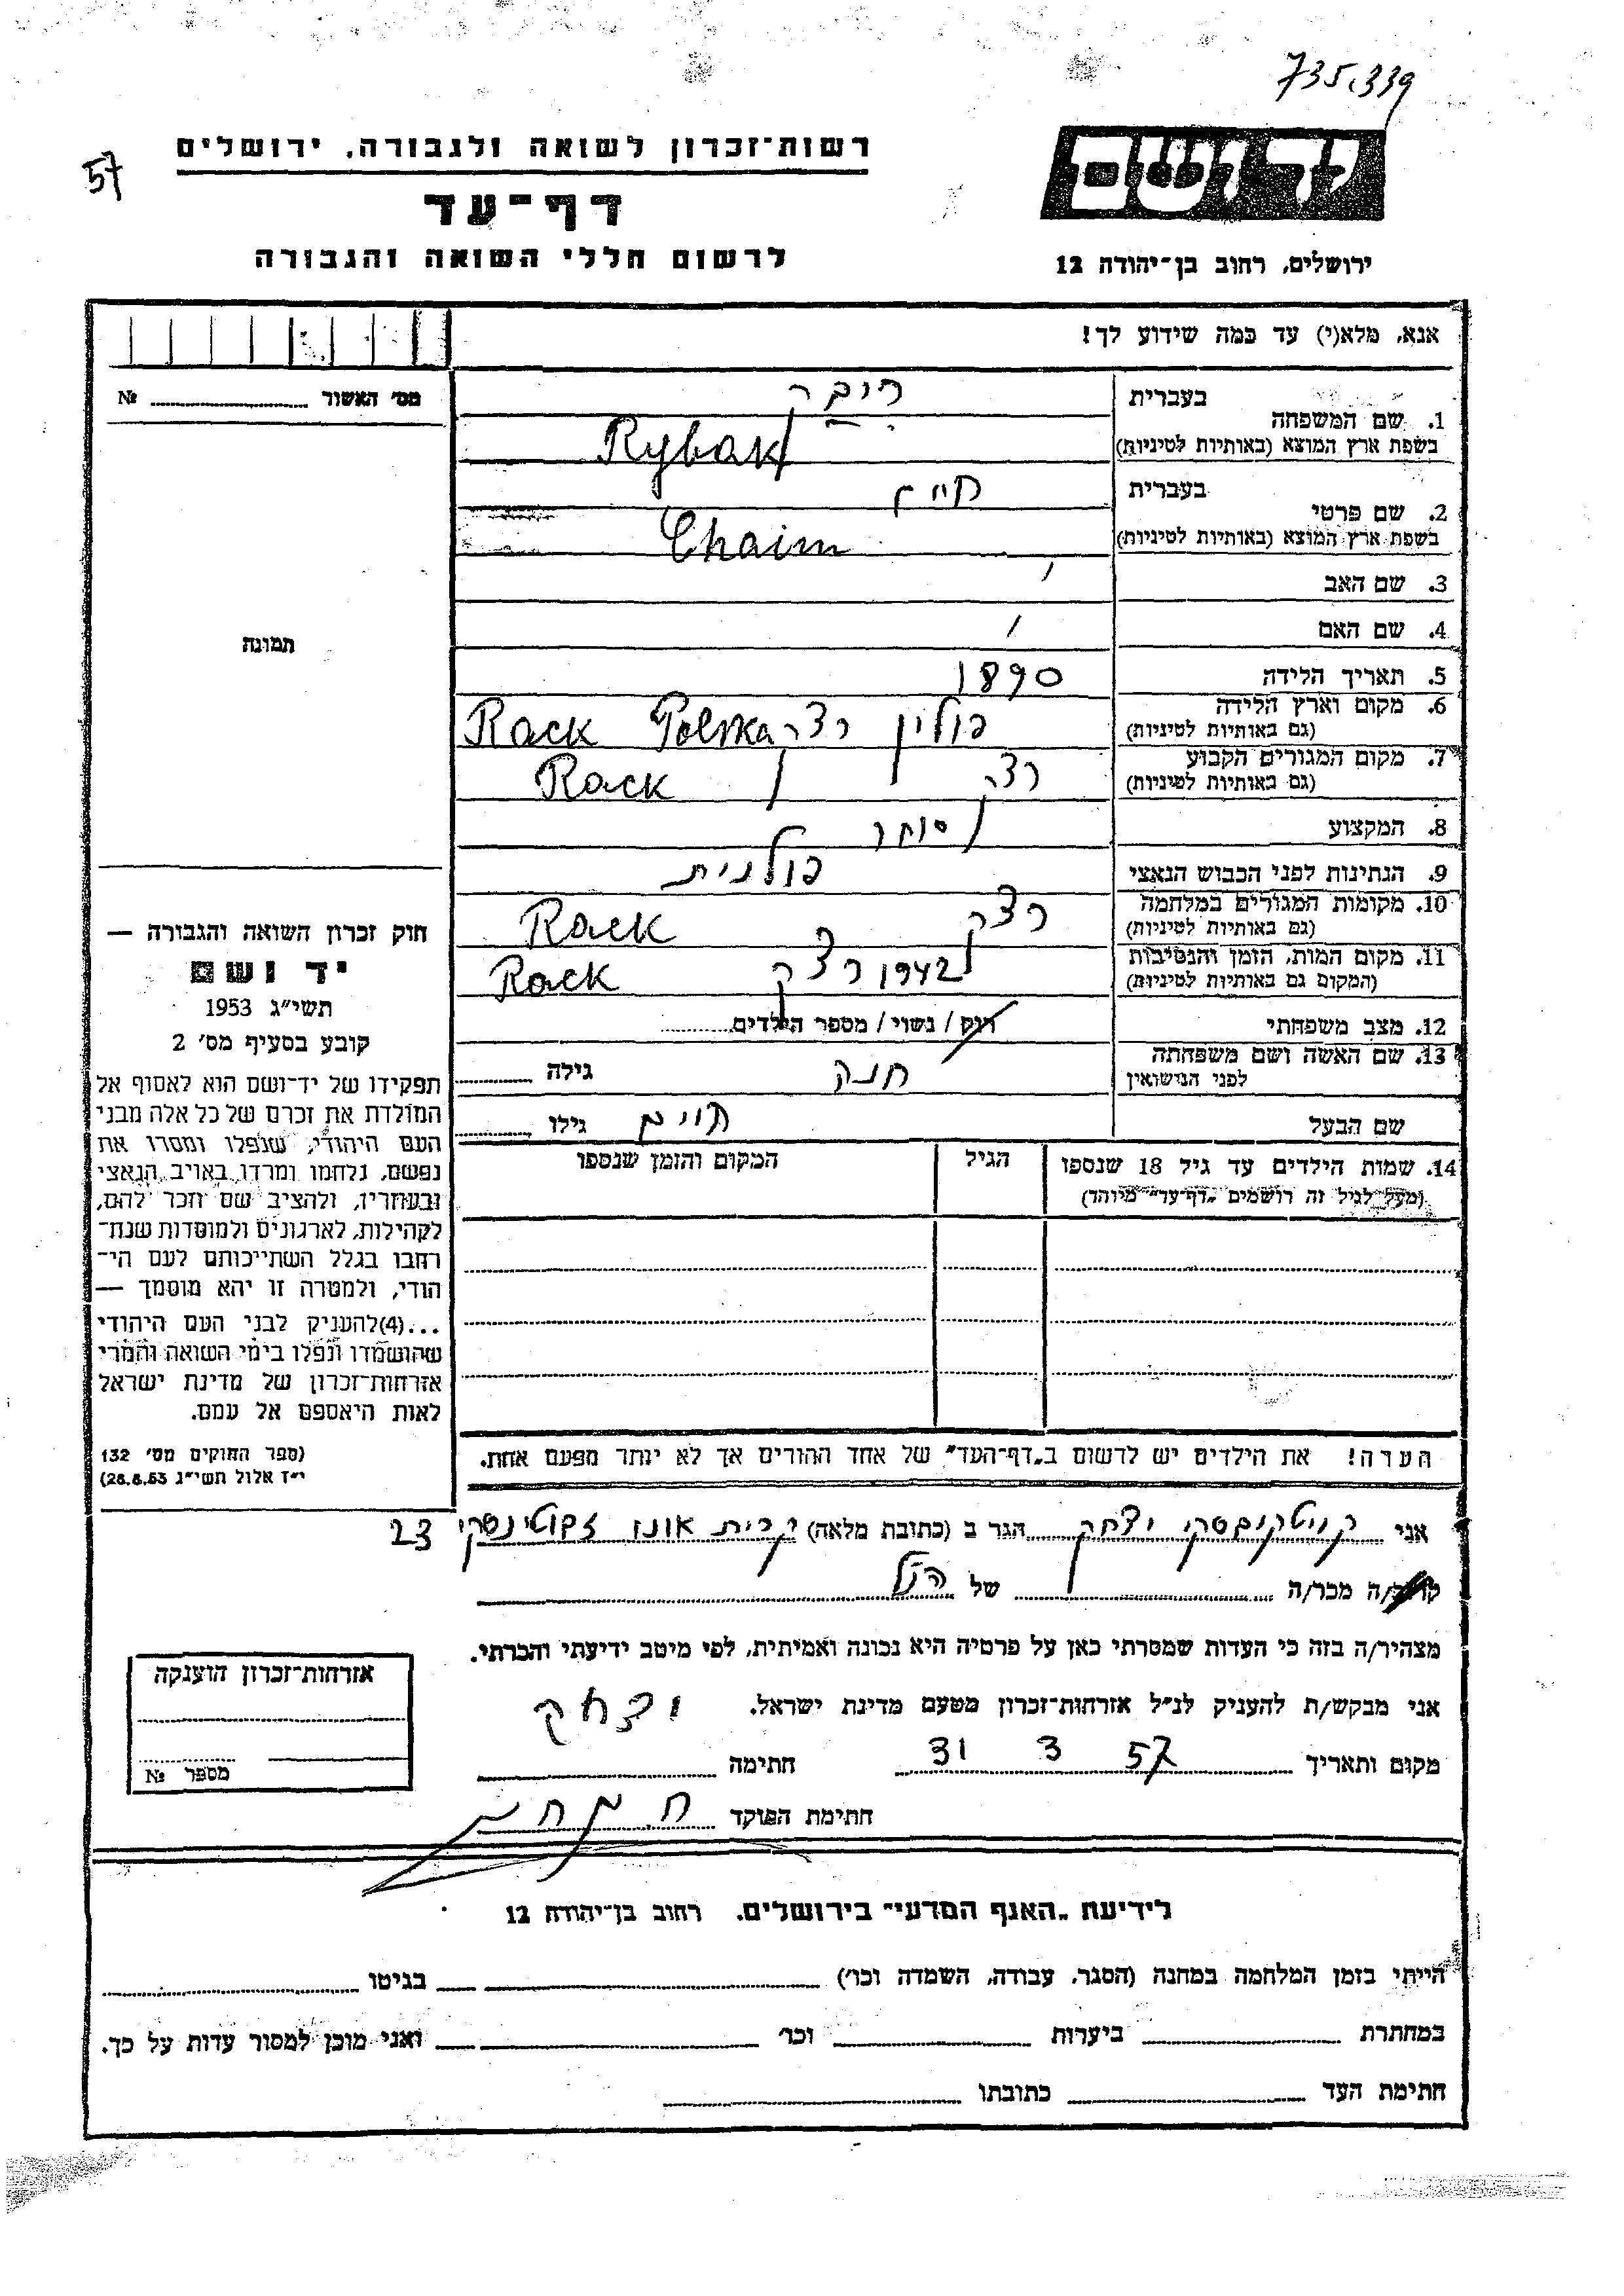 735.339
57
רשות־זכרון לשואה ולגבורה, ירושלים
דף־עד
לרשום חללי השואה והגבורה
יד ושם
ירושלים, רחוב בן־יהודה 12
אנא, מלא(י) עד כמה שידוע לך!
מס' האשור № 
1. שם המשפחה
בעברית
Rybak
בשפת ארץ המוצא (באותיות לטיניות)
2. שם פרטי
בעברית חיים
בשפת ארץ המוצא (באותיות לטיניות) Chaim
3. שם האב
4. שם האם
5. תאריך הלידה 1890
6. מקום וארץ הלידה
(גם באותיות לטיניות) פולין רצק Rack Polska
7. מקום המגורים הקבוע
(גם באותיות לטיניות) רצק Rack
8. המקצוע סוחר
9. הנתינות לפני הכבוש הנאצי פולנית
10. מקומות המגורים במלחמה
(גם באותיות לטיניות) רצק Rack
11. מקום המות, הזמן והנסיבות
(המקום גם באותיות לטיניות) 1942 רצק Rack
12. מצב משפחתי רוק / נשוי / מספר הילדים
13. שם האשה ושם משפחתה
לפני הנישואין חנה גילה
שם הבעל חיים גילו
14. שמות הילדים עד גיל 18 שנספו
(מעל לגיל זה רושמים „דף־עד" מיוחד)
הגיל
המקום והזמן שנספו
הערה! את הילדים יש לרשום ב„דף־העד" של אחד ההורים אך לא יותר מפעם אחת.
תמונה
חוק זכרון השואה והגבורה —
יד ושם
תשי"ג 1953
קובע בסעיף מס' 2
תפקידו של יד־ושם הוא לאסוף אל
המולדת את זכרם של כל אלה מבני
העם היהודי, שנפלו ומסרו את
נפשם, נלחמו ומרדו באויב הנאצי
ובעוזריו, ולהציב שם וזכר להם,
לקהילות, לארגונים ולמוסדות שנח־
רבו בגלל השתייכותם לעם הי־
הודי, ולמטרה זו יהא מוסמך —
...(4)להעניק לבני העם היהודי
שהושמדו ונפלו בימי השואה והמרי
אזרחות־זכרון של מדינת ישראל
לאות היאספם אל עמם.
(ספר החוקים מס' 132
י"ז אלול תשי"ג 28.8.53)
אני קויטקובסקי יצחק הגר ב (כתובת מלאה) קרית אונו ז'בוטינסקי 23
קרוב/ה מכר/ה של הנ"ל
מצהיר/ה בזה כי העדות שמסרתי כאן על פרטיה היא נכונה ואמיתית, לפי מיטב ידיעתי והכרתי.
אני מבקש/ת להעניק לנ"ל אזרחות־זכרון מטעם מדינת ישראל.
מקום ותאריך 31 3 57 חתימה יצחק
חתימת הפוקד
אזרחות־זכרון הוענקה
מספר №
לידיעת „האגף המדעי" בירושלים, רחוב בן־יהודה 12
הייתי בזמן המלחמה במחנה (הסגר, עבודה, השמדה וכו') בגיטו
במחתרת ביערות וכו' ואני מוכן למסור עדות על כך.
חתימת העד כתובתו